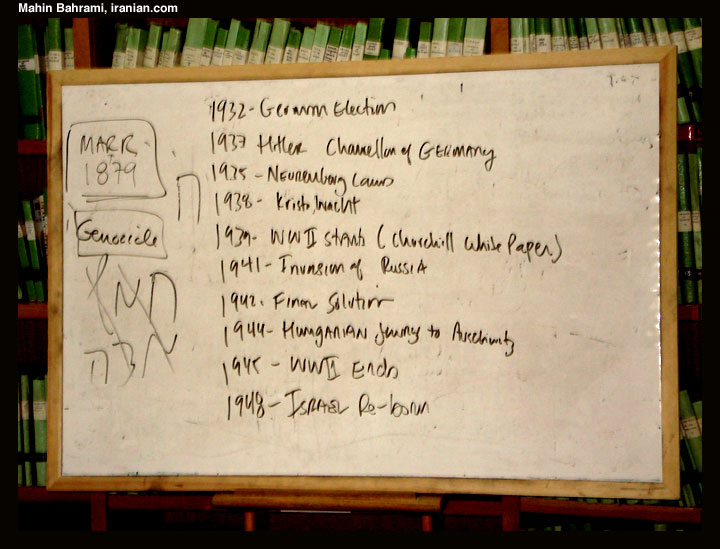 Mahin Bahrami, iranian.com
1932 - German Election
1933 Hitler Chancellor of GERMANY
1935 - Neurenburg Laws
1938 - Kristalnacht
1939 - WWII starts (Churchill White Paper)
1941 - Invasion of RUSSIA
1942 - Final Solution
1944 - HUNGARIAN Jewry to Auschwitz
1945 - WWII Ends
1948 - ISRAEL Re-born
MARR
1879
Genocide